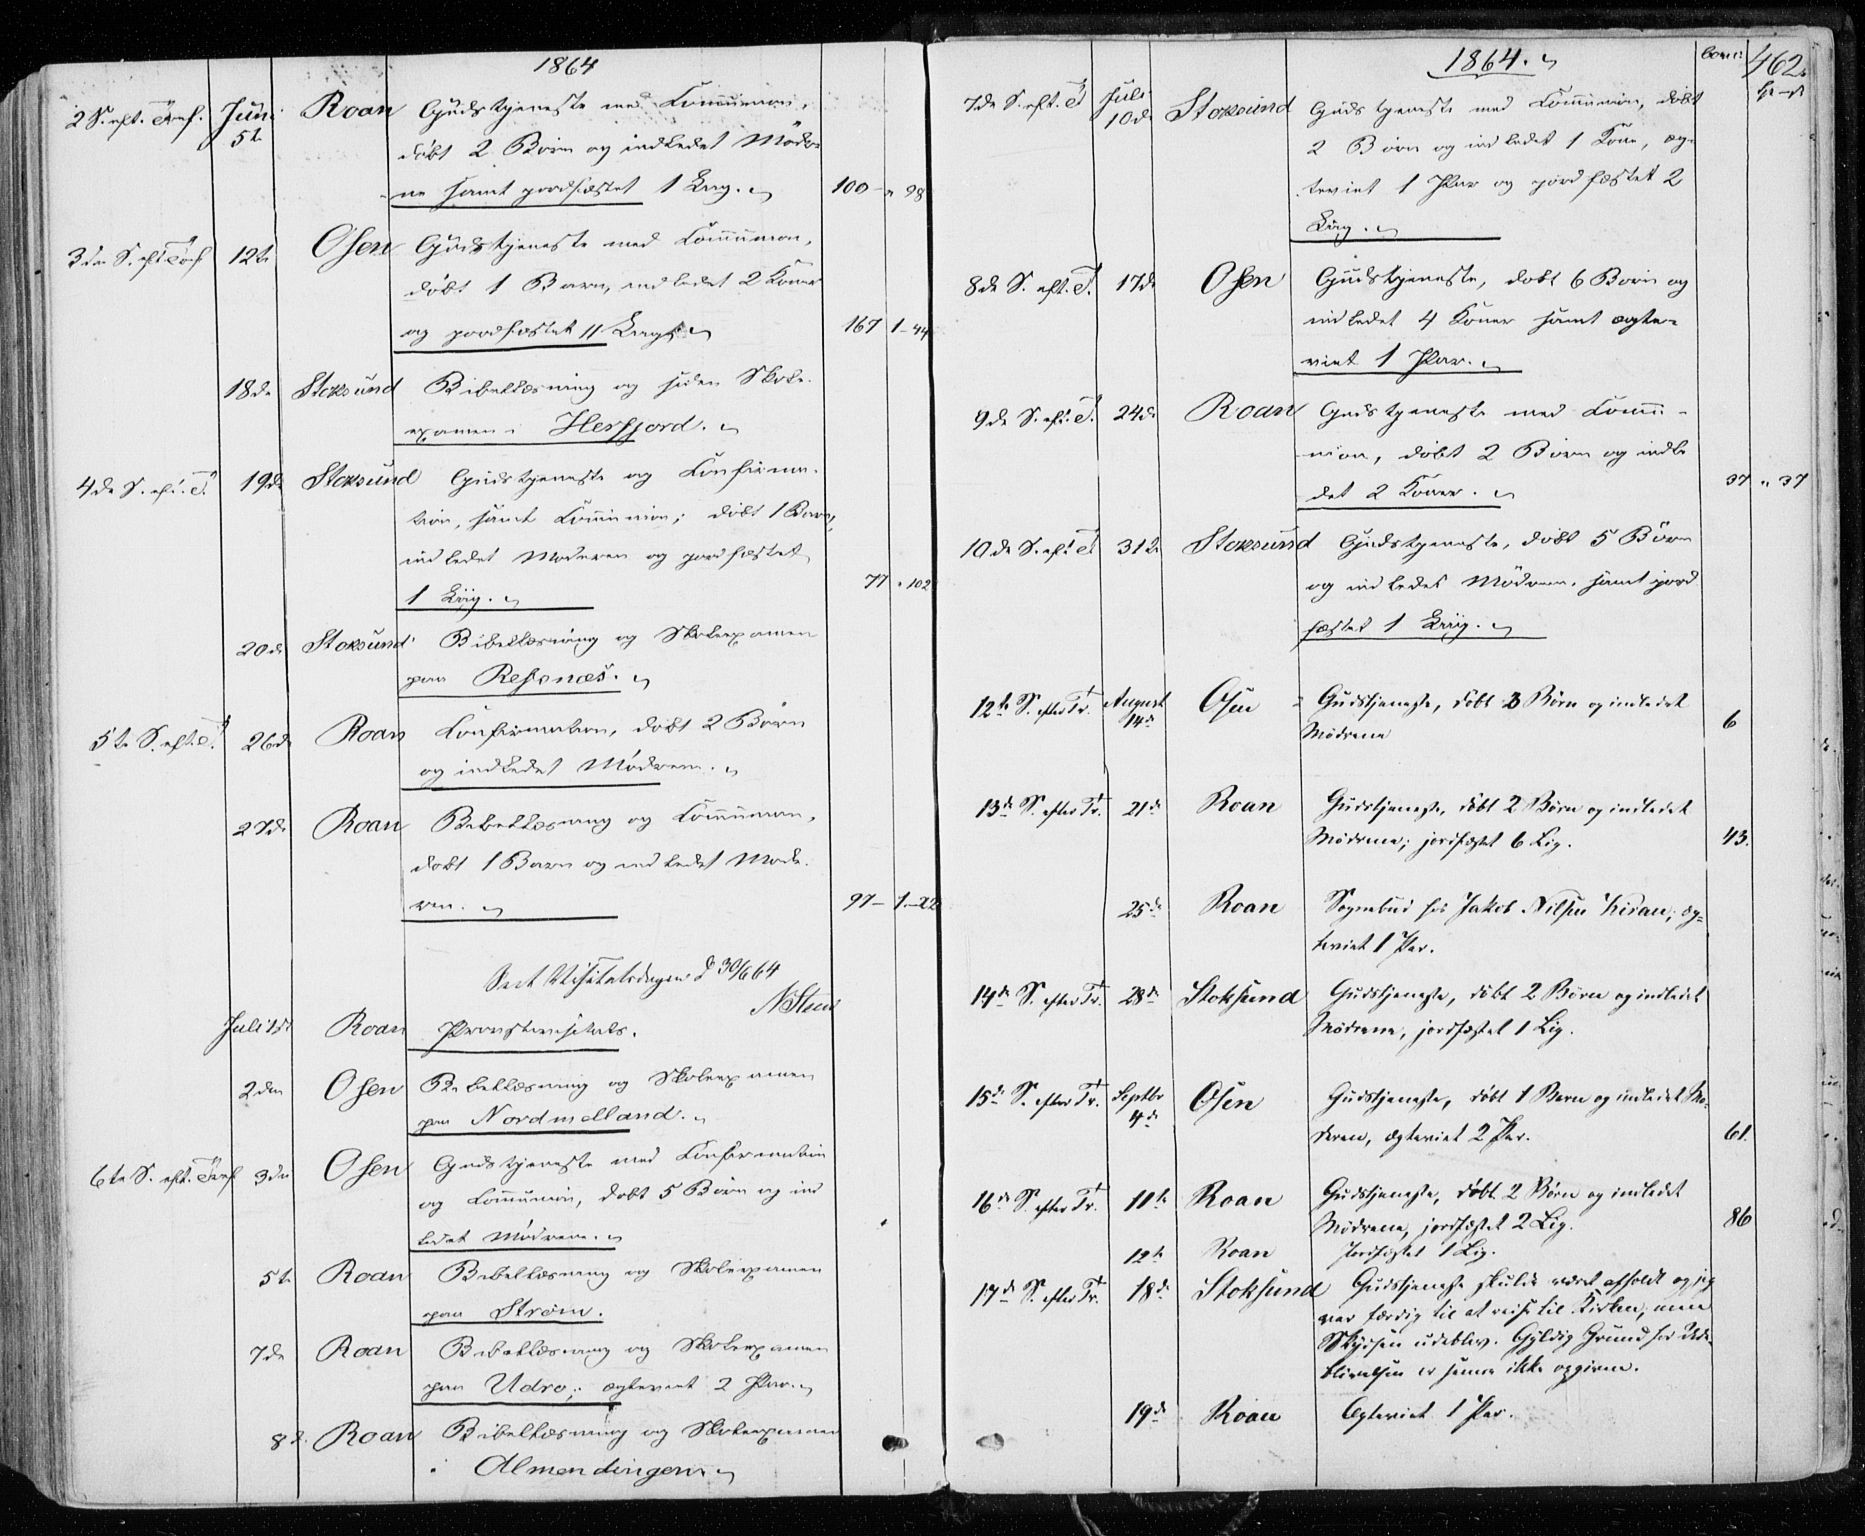 1864
2 S. eft. Tref. Juni 5te Roan Gudstjeneste med Communion,
døbt 2 Børn og indledet Mødre-
ne samt jordfæstet 1 Lig. 100 - " 98
3die S. eft. Tref 12te Osen Gudstjeneste med Communion,
døbt 1 Barn, indledet 2 Koner
og jordfæstet 11 Lig 167 1-44
18de Stoksund Bibellæsning og siden Skole-
examen i Herfjord.
4de S. eft. T. 19de Stoksund Gudstjeneste og Confirma-
tion, samt Communion; døbt 1 Barn,
indledet Moderen og jordfæstet
1 Liig. 77 " 102
20de Stoksund Bibellæsning og Skoleexamen
paa Resenæs.
5te S. eft. T. 26de Roan Confirmation, døbt 2 Børn
og indledet Mødrene.
27de Roan Bibellæsning og Communion,
døbt 1 Barn og indledet Mode-
ren. 97- 1-22
Seet Visitatsdagen d 30/6 64
N Steen
Juli 1ste Roan Provstevisitats.
2den Osen Bibellæsning og Skoleexamen
paa Nordmelland.
6te S. eft. Tref 3die Osen Gudstjeneste med Confirmation
og Communion, døbt 5 Børn og ind
ledet Mødrene.
5te Roan Bibellæsning og Skoleexamen
paa Strøm.
7de Roan Bibellæsning og Skoleexamen
paa Udro; ægteviet 2 Par.
8de. Roan Bibellæsning og Skoleexamen
i Almendingen
1864. 462.
7de S. eft. T Juli 10de Stoksund Gudstjeneste med Communion, døbt
2 Børn og indledet 1 Kone, æg-
teviet 1 Par og jordfæstet 2
Liig.
8de S. eft. T. 17de Osen Gudstjeneste, døbt 6 Børn og
indledet 4 Koner samt ægte-
viet 1 Par.
9de S. eft. T. 24de Roan Gudstjeneste med Commu-
nion, døbt 2 Børn og indle
det 2 Koner. 37 " 37
10de S. eft. T 31te Stoksund Gudstjeneste, døbt 5 Børn
og indledet Mødrene, samt jord
fæstet 1 Liig.
12te S. efter Tr. August 14de Osen Gudstjeneste, døbt 3 Børn og indledet
Mødrene 6
13de S. efter Tr. 21de Roan Gudstjeneste, døbt 2 Børn og indledet
Mødrene; jordfæstet 6 Lig. 43.
25de Roan Sognebud hos Jakob Nilsen Kiran; æg-
teviet 1 Par.
14de S. efter Tr. 28de Stoksund Gudstjeneste, døbt 2 Børn og indledet
Mødrene, jordfæstet 1 Lig.
15de S. efter Tr. Septbr 4de Osen Gudstjeneste, døbt 1 Barn og indledet Mo-
deren, ægteviet 2 Par. 61.
16de S. efter Tr. 11te Roan Gudstjeneste, døbt 2 Børn og indledet
Mødrene, jordfæstet 2 Lig. 86
12te Roan Jordfæstet 1 Lig.
17de S. efter Tr. 18de Stoksund Gudstjeneste skulde været afholdt og jeg
var færdig til at reise til Kirken, men
Skydsen udeblev. Gyldig Grund for Ude-
blivelsen er senere ikke opgiven.
19de Roan Ægteviet 1 Par.